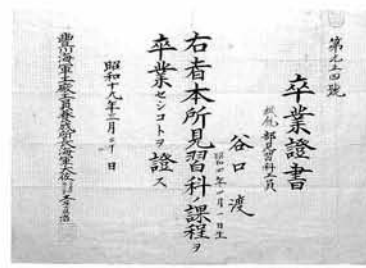 第九十四號
卒業證書
部見習科工員
谷口渡
昭和四年一月一日生
右者本所見習科ノ課程ヲ
卒業セシコトヲ證ス
昭和十九年三月 日
豊川海軍工廠工員養成所長海軍大佐